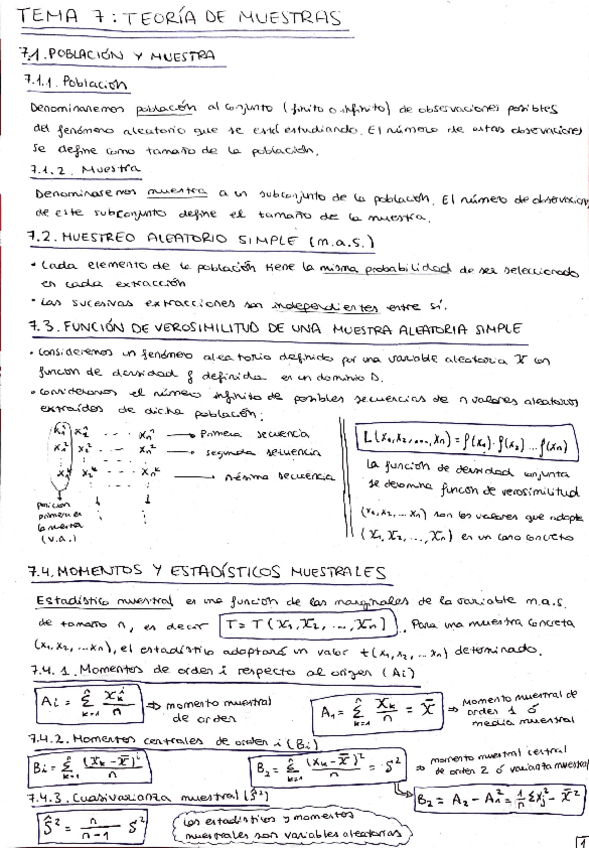 TEMA 7: TEORÍA DE MUESTRAS
7.1. POBLACIÓN Y MUESTRA
7.1.1. Población
Denominaremos población al conjunto (finito o infinito) de observaciones posibles
del fenómeno aleatorio que se está estudiando. El número de estas observaciones
se define como tamaño de la población.
7.1.2. Muestra
Denominaremos muestra a un subconjunto de la población. El número de observacion
de este subconjunto define el tamaño de la muestra.
7.2. MUESTREO ALEATORIO SIMPLE (m.a.s.)
• Cada elemento de la población tiene la misma probabilidad de ser seleccionado
en cada extracción
• Las sucesivas extracciones son independientes entre sí.
7.3. FUNCIÓN DE VEROSIMILITUD DE UNA MUESTRA ALEATORIA SIMPLE
• Consideremos un fenómeno aleatorio definido por una variable aleatoria X con
función de densidad f definida en un dominio D.
• Consideramos el número infinito de posibles secuencias de n valores aleatorios
extraídos de dicha población:
x₁¹ x₂¹ ... xₙ¹ → Primera secuencia
x₁² x₂² ... xₙ² → segunda secuencia
xₙᵏ →
posición
primera de
la muestra
(v.a.)
L(x₁,x₂,...,xₙ) = f(x₁)·f(x₂)...f(xₙ)
La función de densidad conjunta
se denomina función de verosimilitud
(x₁,x₂,...xₙ) son los valores que adopta
(X₁,X₂,...,Xₙ) en un caso concreto
7.4. MOMENTOS Y ESTADÍSTICOS MUESTRALES
Estadístico muestral es una función de las marginales de la variable m.a.s.
de tamaño n, es decir T = T(X₁,X₂,...,Xₙ). Para una muestra concreta
(x₁,x₂,...xₙ), el estadístico adoptará un valor t(x₁,x₂,...xₙ) determinado.
7.4.1. Momentos de orden i respecto al origen (Ai)
Ai = Σₖ₌₁ⁿ Xₖⁱ/n ⇒ momento muestral
de orden
A₁ = Σₖ₌₁ⁿ Xₖ/n = X̄ ⇒ Momento muestral de
orden 1 ó
media muestral
7.4.2. Momentos centrales de orden i (Bi)
Bi = Σₖ₌₁ⁿ (Xₖ-X̄)ⁱ/n
B₂ = Σₖ₌₁ⁿ (Xₖ-X̄)²/n = S² ⇒ momento muestral central
de orden 2 ó varianza muestral
B₂ = A₂ - A₁² = 1/n Σxⱼ² - X̄²
7.4.3. Cuasivarianza muestral (Ŝ²)
Ŝ² = n/(n-1) S²
Los estadísticos y momentos
muestrales son variables aleatorias
1